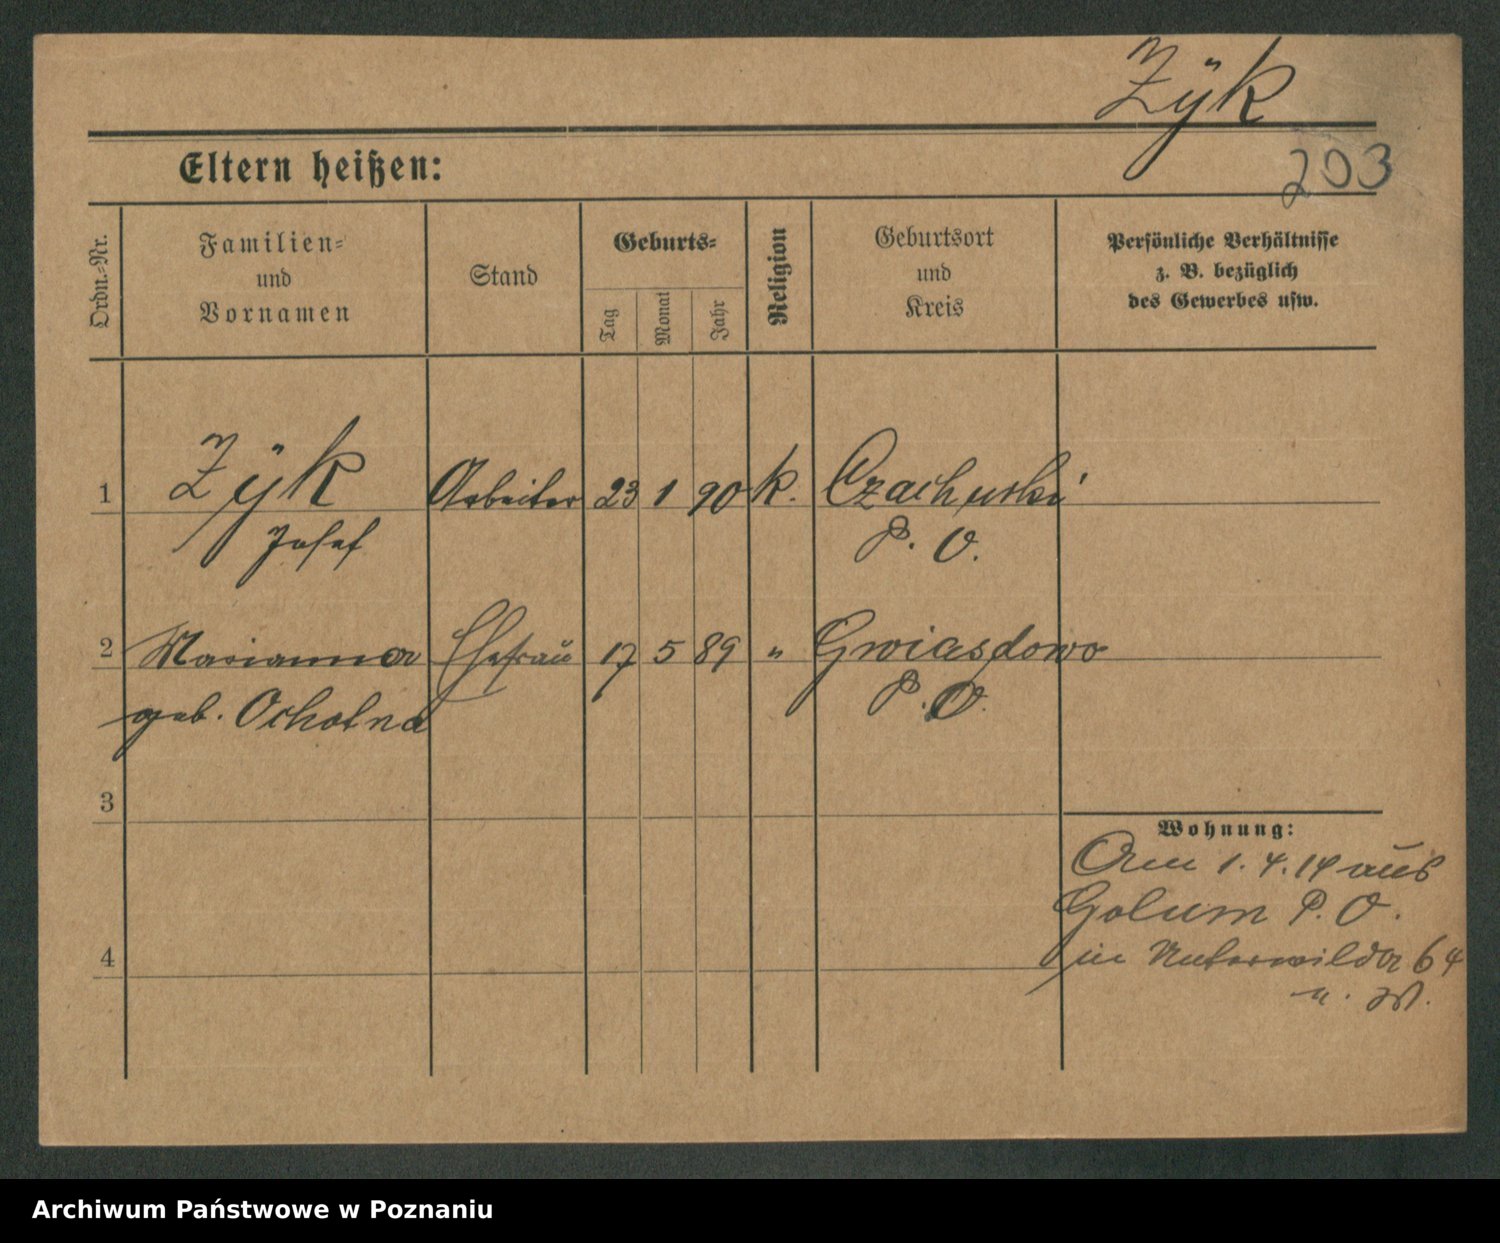 Zÿk
203
Eltern heißen:
Ordn.-Nr.
Familien-
und
Vornamen
Stand
Geburts-
Tag
Monat
Jahr
Religion
Geburtsort
und
Kreis
Persönliche Verhältnisse
z. B. bezüglich
des Gewerbes usw.
1 Zÿk Arbeiter 23 1 90 k. Czachurki
Josef P. O.
2 Marianna Ehefrau 17 5 89 " Gwiasdowo
geb. Ochotna P. O.
3
Wohnung:
Am 1.4.14 aus
Golum P. O.
4 in Unterwilda 64
Archiwum Państwowe w Poznaniu